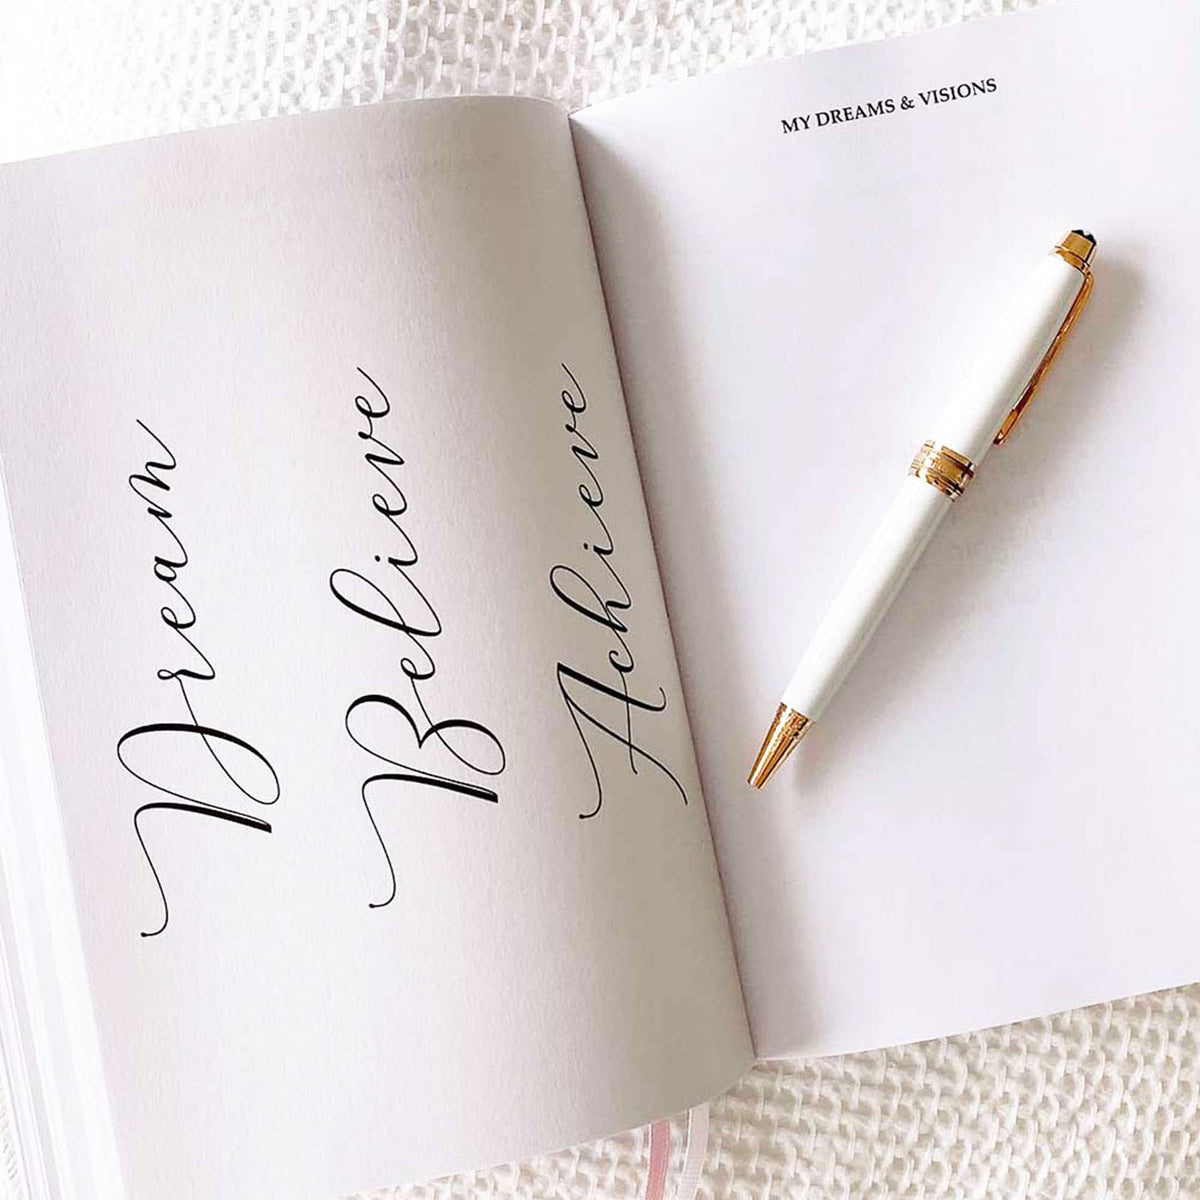 Dream
Believe
Achieve
MY DREAMS & VISIONS